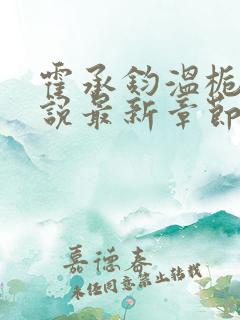 霍承钧温栀
说最新章节
嘉德春
未经同意禁止转载